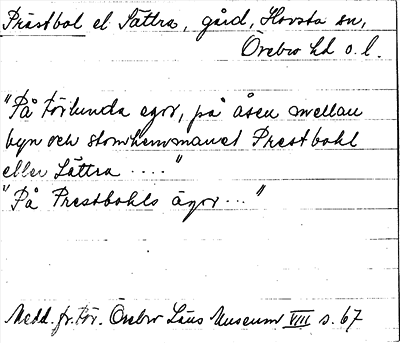 Prästbol el Sättra, gård, Hovsta sn,
Örebro hd o. l.
"På Törlunda egor, på åsen mellan
byn och stomhemmanet Prestbohl
eller Sättra ...."
"På Prestbohls ägor..."
Medd. fr. För. Örebro Läns Museum VIII s. 67